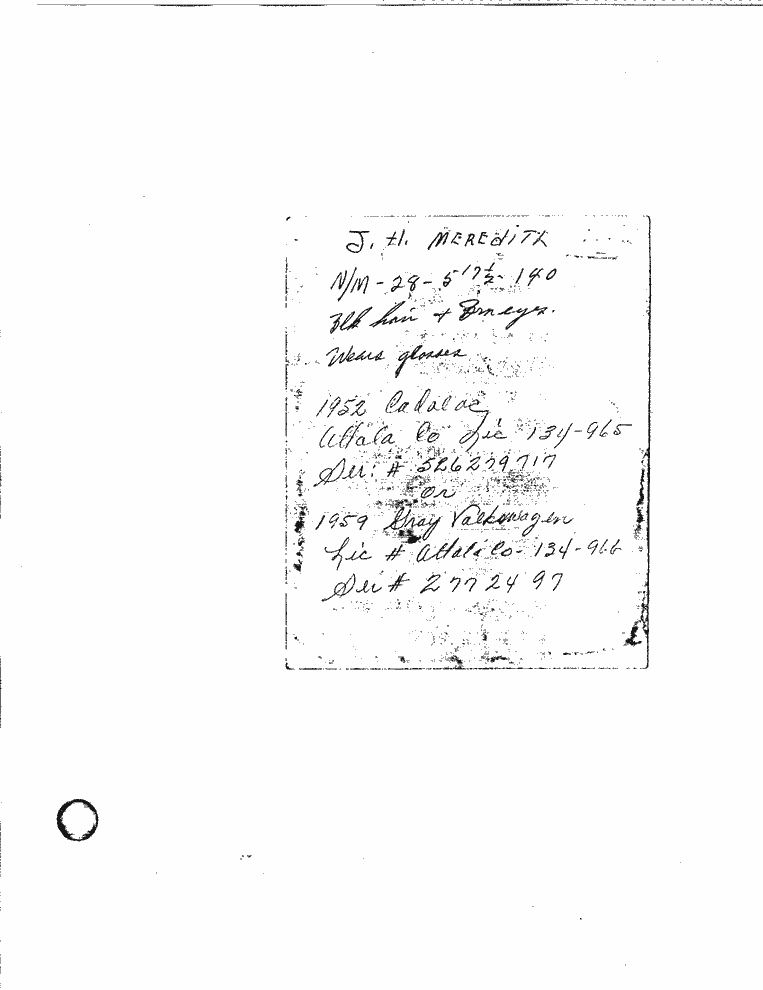 J. H. MEREdiTH
N/M - 28 - 5'7½ - 140
Blk hair + Brn eyes.
Wears glasses
1952 Cadalac
Attala Co Lic 134-965
Ser. # 526279717
or
1959 Gray Valkswagen
Lic # Attala Co - 134-966
Ser # 2772497